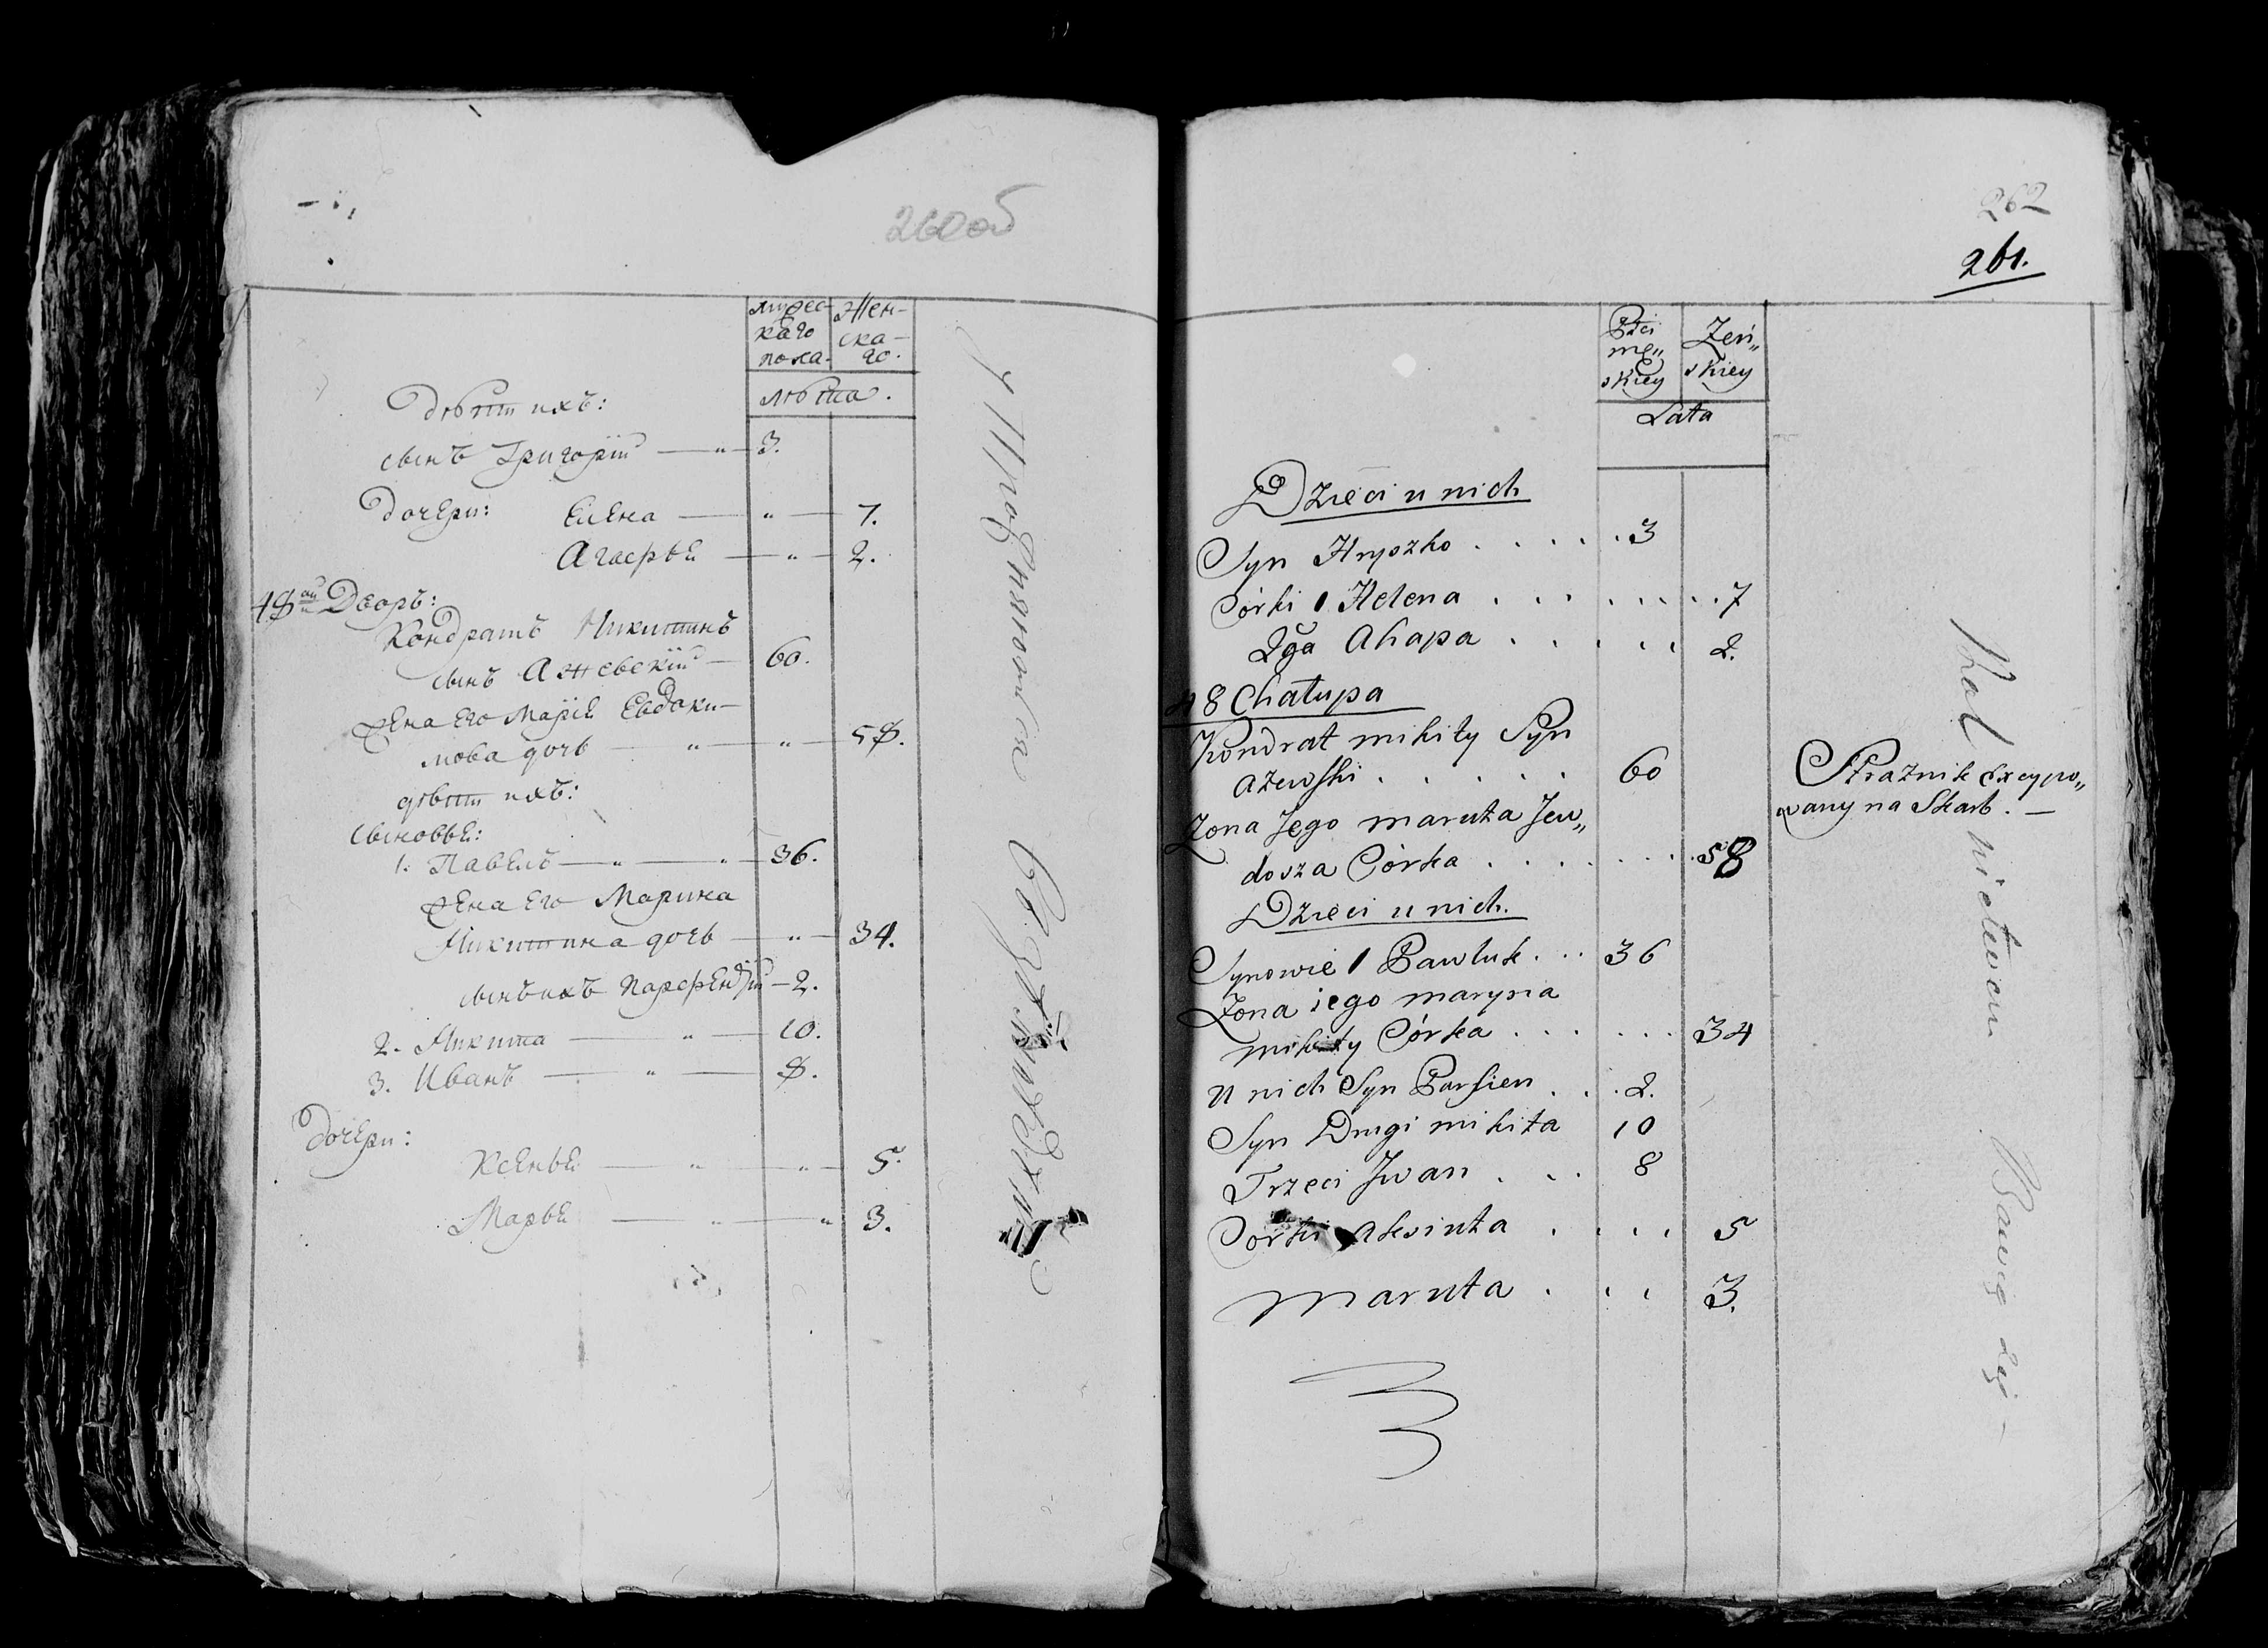 260об
мужес-
каго
пола.
Жен-
ска-
го.
лѣта.
Дѣти ихъ:
сынъ Григорій 3.
Дочери: Елена 7.
Агафья 2.
48ой Дворъ:
Кондратъ Никитинъ
сынъ Ажевскій 60.
Жена Его Марія Евдоки-
мова дочь 58.
дѣти ихъ:
Сыновья:
1. Павелъ 36.
Жена Его Марина
Никитина дочь 34.
сынъ ихъ Парфендій 2.
2. Никита 10.
3. Иванъ 8.
Дочери:
Ксенья 5.
Марья 3.
262
261.
Płci
mę„
skiey
Zeń„
skiey
Lata
Dzieci u nich
Syn Hryszko 3
Córki 1 Helena 7
2ga Ahapa 2.
48 Chałupa
Kondrat mikity Syn
Ażewski 60
Zona Jego maruta Jew„
dosza Córka 58
Dzieci u nich.
Synowie 1 Pawluk 36
Zona iego maryna
mikity Córka 34
U nich Syn Parfien 2.
Syn Drugi mikita 10
Trzeci Jwan 8
Córki Aksiuta 5
Maruta 3.
Strażnik Excypo„
wany na Skarb. —